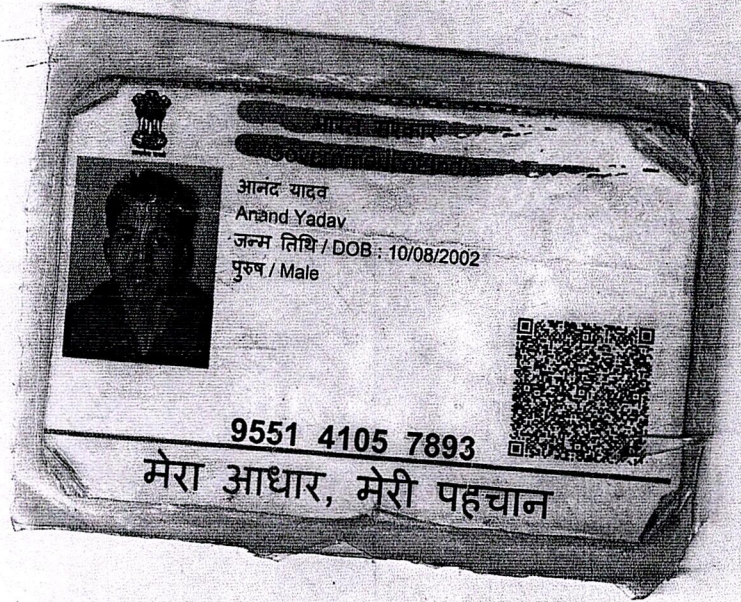 भारत सरकार
आनंद यादव
Anand Yadav
जन्म तिथि / DOB : 10/08/2002
पुरुष / Male
9551 4105 7893
मेरा आधार, मेरी पहचान